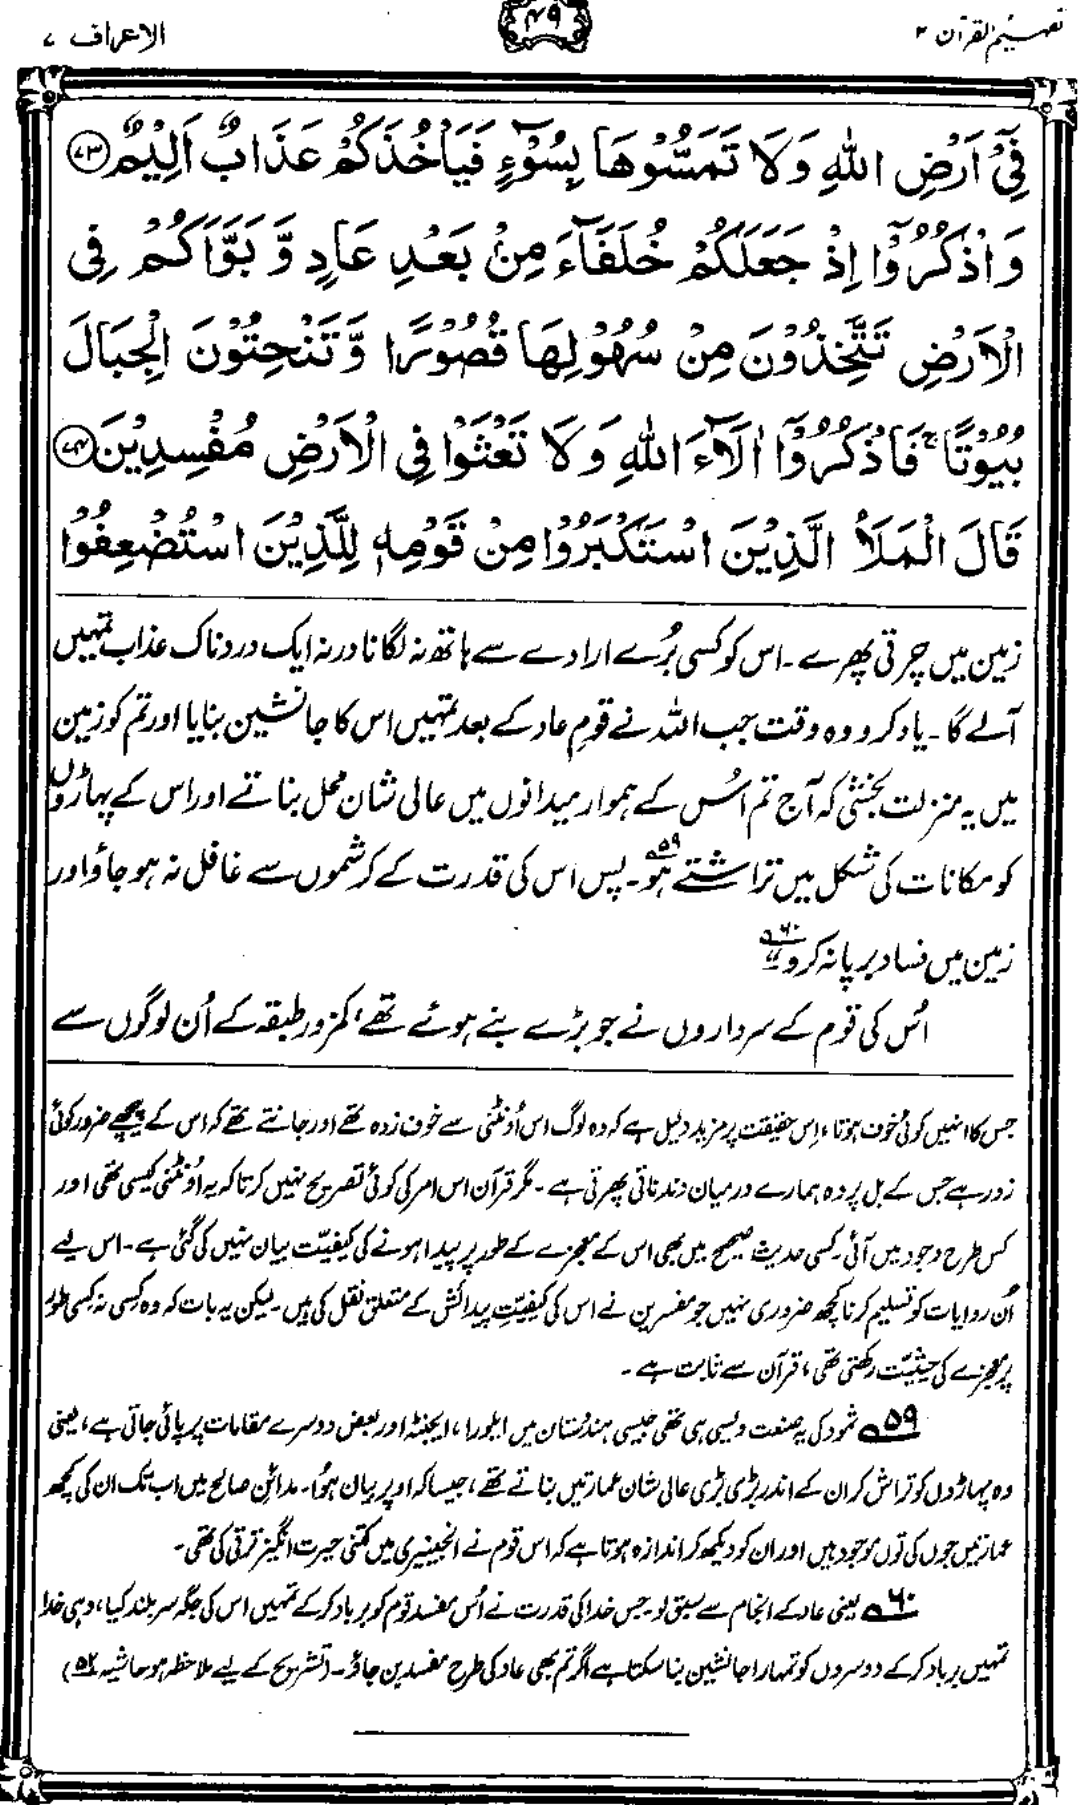 تفہیم القرآن ۲
۴۹
الاعراف ۷
فِيْٓ اَرْضِ اللّٰهِ وَلَا تَمَسُّوْهَا بِسُوْٓءٍ فَيَاْخُذَكُمْ عَذَابٌ اَلِيْمٌ ﴿۷۳﴾
وَاذْكُرُوْٓا اِذْ جَعَلَكُمْ خُلَفَآءَ مِنْۢ بَعْدِ عَادٍ وَّ بَوَّاَكُمْ فِي
الْاَرْضِ تَتَّخِذُوْنَ مِنْ سُهُوْلِهَا قُصُوْرًا وَّ تَنْحِتُوْنَ الْجِبَالَ
بُيُوْتًا ۚ فَاذْكُرُوْٓا اٰلَآءَ اللّٰهِ وَلَا تَعْثَوْا فِي الْاَرْضِ مُفْسِدِيْنَ ﴿۷۴﴾
قَالَ الْمَلَاُ الَّذِيْنَ اسْتَكْبَرُوْا مِنْ قَوْمِهٖ لِلَّذِيْنَ اسْتُضْعِفُوْا
زمین میں چرتی پھرے۔ اس کو کسی بُرے ارادے سے ہاتھ نہ لگانا ورنہ ایک دردناک عذاب تمہیں
آلے گا۔ یاد کرو وہ وقت جب اللہ نے قومِ عاد کے بعد تمہیں اس کا جانشین بنایا اور تم کو زمین
میں یہ منزلت بخشی کہ آج تم اُس کے ہموار میدانوں میں عالی شان محل بناتے اور اس کے پہاڑوں
کو مکانات کی شکل میں تراشتے ہو۵۹۔ پس اس کی قدرت کے کرشموں سے غافل نہ ہو جاؤ اور
زمین میں فساد برپا نہ کرو۶۰“
اُس کی قوم کے سرداروں نے جو بڑے بنے ہوئے تھے، کمزور طبقہ کے اُن لوگوں سے
جس کا انہیں کوئی خوف ہوتا، اِس حقیقت پر مزید دلیل ہے کہ وہ لوگ اس اُونٹنی سے خوف زدہ تھے اور جانتے تھے کہ اس کے پیچھے ضرور کوئی
زور ہے جس کے بل پر وہ ہمارے درمیان دندناتی پھرتی ہے۔ مگر قرآن اس امر کی کوئی تصریح نہیں کرتا کہ یہ اُونٹنی کیسی تھی اور
کس طرح وجود میں آئی۔ کسی حدیث صحیح میں بھی اس کے معجزے کے طور پر پیدا ہونے کی کیفیّت بیان نہیں کی گئی ہے۔ اس لیے
اُن روایات کو تسلیم کرنا کچھ ضروری نہیں جو مفسرین نے اس کی کیفیّتِ پیدائش کے متعلق نقل کی ہیں۔ لیکن یہ بات کہ وہ کسی نہ کسی طور
پر معجزے کی حیثیّت رکھتی تھی، قرآن سے ثابت ہے۔
۵۹ ثمود کی یہ صنعت ویسی ہی تھی جیسی ہندستان میں ایلورا، ایجنٹہ اور بعض دوسرے مقامات پر پائی جاتی ہے، یعنی
وہ پہاڑوں کو تراش کر ان کے اندر بڑی بڑی عالی شان عمارتیں بناتے تھے، جیسا کہ اوپر بیان ہوا۔ مدائنِ صالح میں اب تک ان کی کچھ
عمارتیں جوں کی توں موجود ہیں اور ان کو دیکھ کر اندازہ ہوتا ہے کہ اس قوم نے انجینیری میں کتنی حیرت انگیز ترقی کی تھی۔
۶۰ یعنی عاد کے انجام سے سبق لو۔ جس خدا کی قدرت نے اُس مفسد قوم کو برباد کر کے تمہیں اس کی جگہ سر بلند کیا، وہی خدا
تمہیں برباد کر کے دوسروں کو تمہارا جانشین بنا سکتا ہے اگر تم بھی عاد کی طرح مفسد بن جاؤ۔ (تشریح کے لیے ملاحظہ ہو حاشیہ ۵۲)